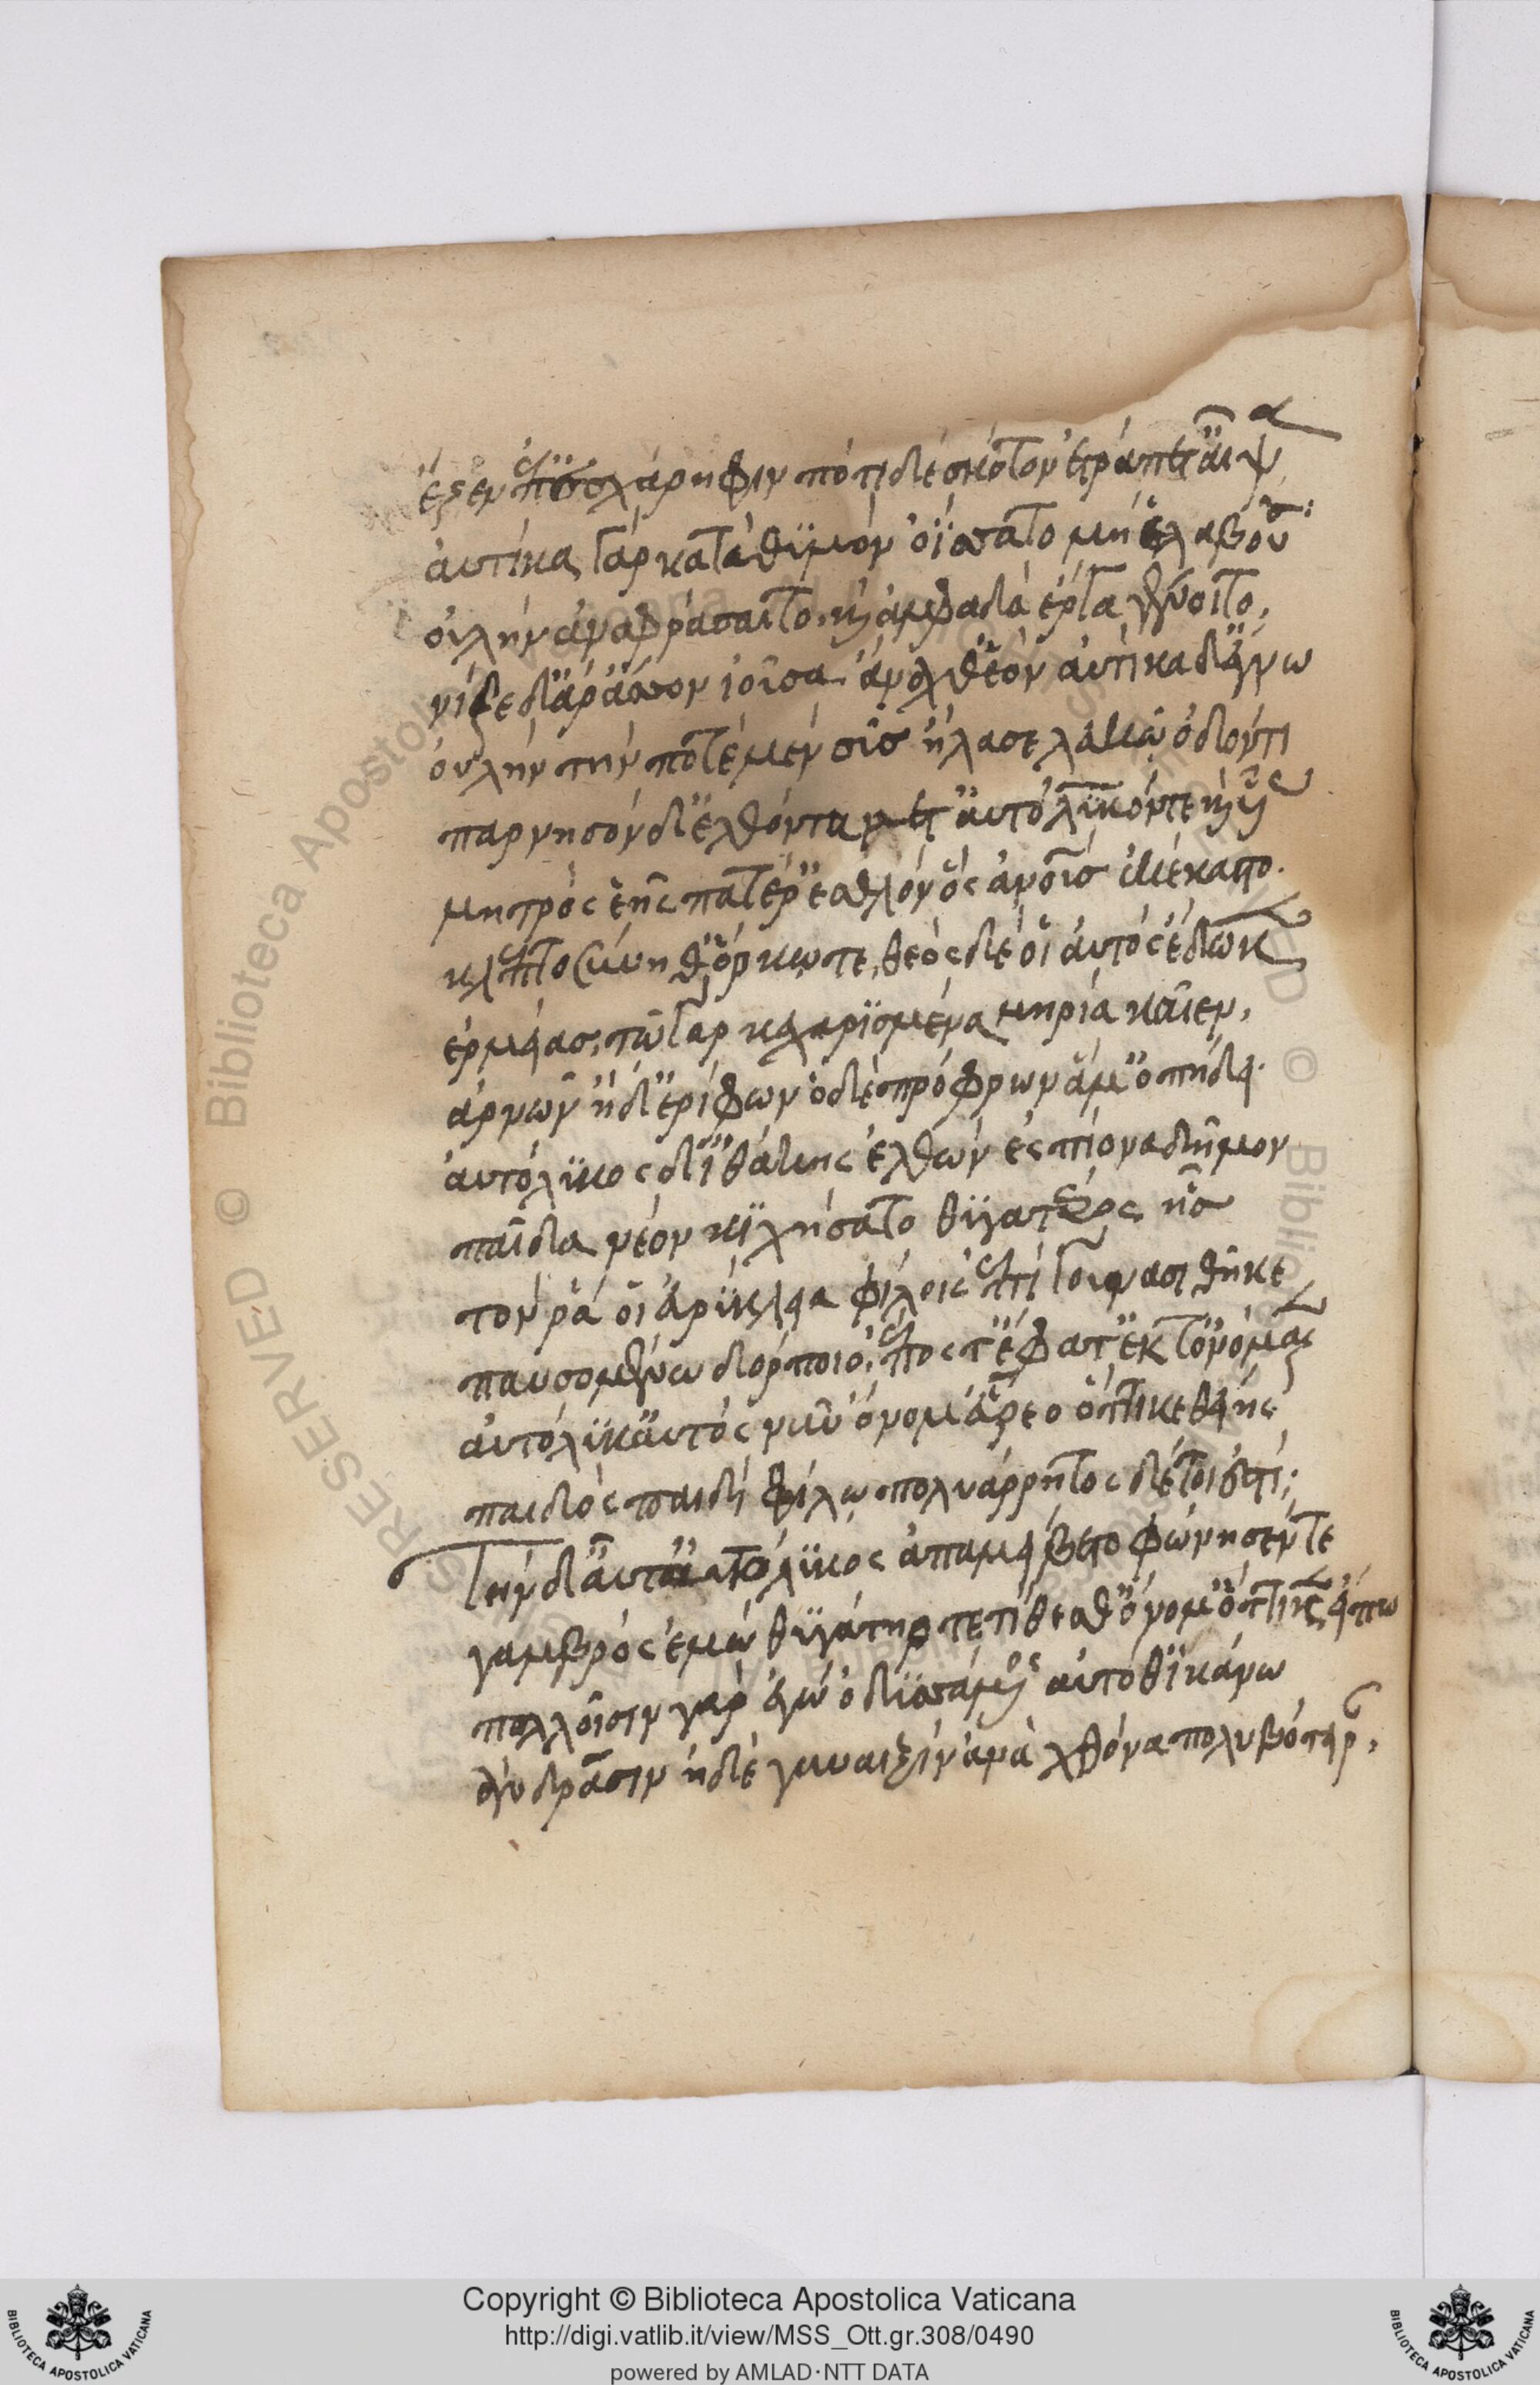 ἕζεν ἐπ ἐσχάρηφιν πότι δὲ σκότον ἐτράπετ᾽ ἄιψα
ἀυτίκα γὰρ κατὰ θϋμὸν ὀΐσατο μὴ ἓ λαβοῦσα:
οὐλὴν ἀναφράσαιτο, καὶ ἀμφαδὰ ἔργα γένοιτο,
νίζε δ᾽ ἄρ᾽ ἄσσον ἰοῦσα ἄναχθ᾽ ἑὸν ἀυτίκα δ᾽ ἔγνω
ὀυλὴν τήν ποτέ μεν σῦσ ἤλασε λευκῶ ὀδόντι
παρνησὸνδ᾽ ἐλθόντα μετ᾽ ἀυτόλϋκόντε καὶ υἷας
μητρὸς ἑῆς πατέρ᾽ ἐσθλὸν ὃς ἀνθρώπουσ ἐκέκαστο.
κλεπτοσύνη θ᾽ ὅρκωτε, θεὸς δέ οἱ ἀυτὸς ἔδωκεν
ἑρμείασ, τῶ γὰρ κεχαρϊσμένα μηρία καῖεν,
ἀρνῶν ἠδ᾽ ἐρίφων ὁ δέ πρόφρων ἅμ᾽ ὀπήδει.
ἀυτόλϋκος δ᾽ ἰθάκης ἐλθὼν ἐς πίονα δῆμον
παῖδα νέον κϊχήσατο θϋγατέρος ἧσ
τόν ῥά οἱ ἐυρύκλεια φίλοις ἐπὶ γούνασι θῆκε
παυσομένω δόρποιο, ἔπος τ᾽ ἔφατ᾽ ἔκ τ᾽ ὀνόμαζε
ἀυτόλϋκ᾽ ἀυτὸς νῦν ὄνομ᾽ ἕυρεο ὅττι κε θείης
παιδὸς παιδὶ φίλω πολυάρρητος δέ τοι ἐστί;
Τὴν δ᾽ ἀῦτ᾽ ἀυτόλϋκος ἀπαμείβετο φώνησέν τε
γαμβρὸς ἐμὸς θϋγάτηρ τε τίθεσθ᾽ ὄνομ᾽ ὅττικεν εἴπω
πολλοῖσιν γὰρ ἐγὼ ὀδϋσάμενος ἀυτόθ᾽ ϊκάνω
ἀνδράσιν ἠδὲ γυναιξὶν ἀνὰ χθόνα πολυβότειραν,
RESERVED © Biblioteca Apostolica Vaticana
Copyright © Biblioteca Apostolica Vaticana
http://digi.vatlib.it/view/MSS_Ott.gr.308/0490
powered by AMLAD·NTT DATA
BIBLIOTECA APOSTOLICA VATICANA
BIBLIOTECA APOSTOLICA VATICANA